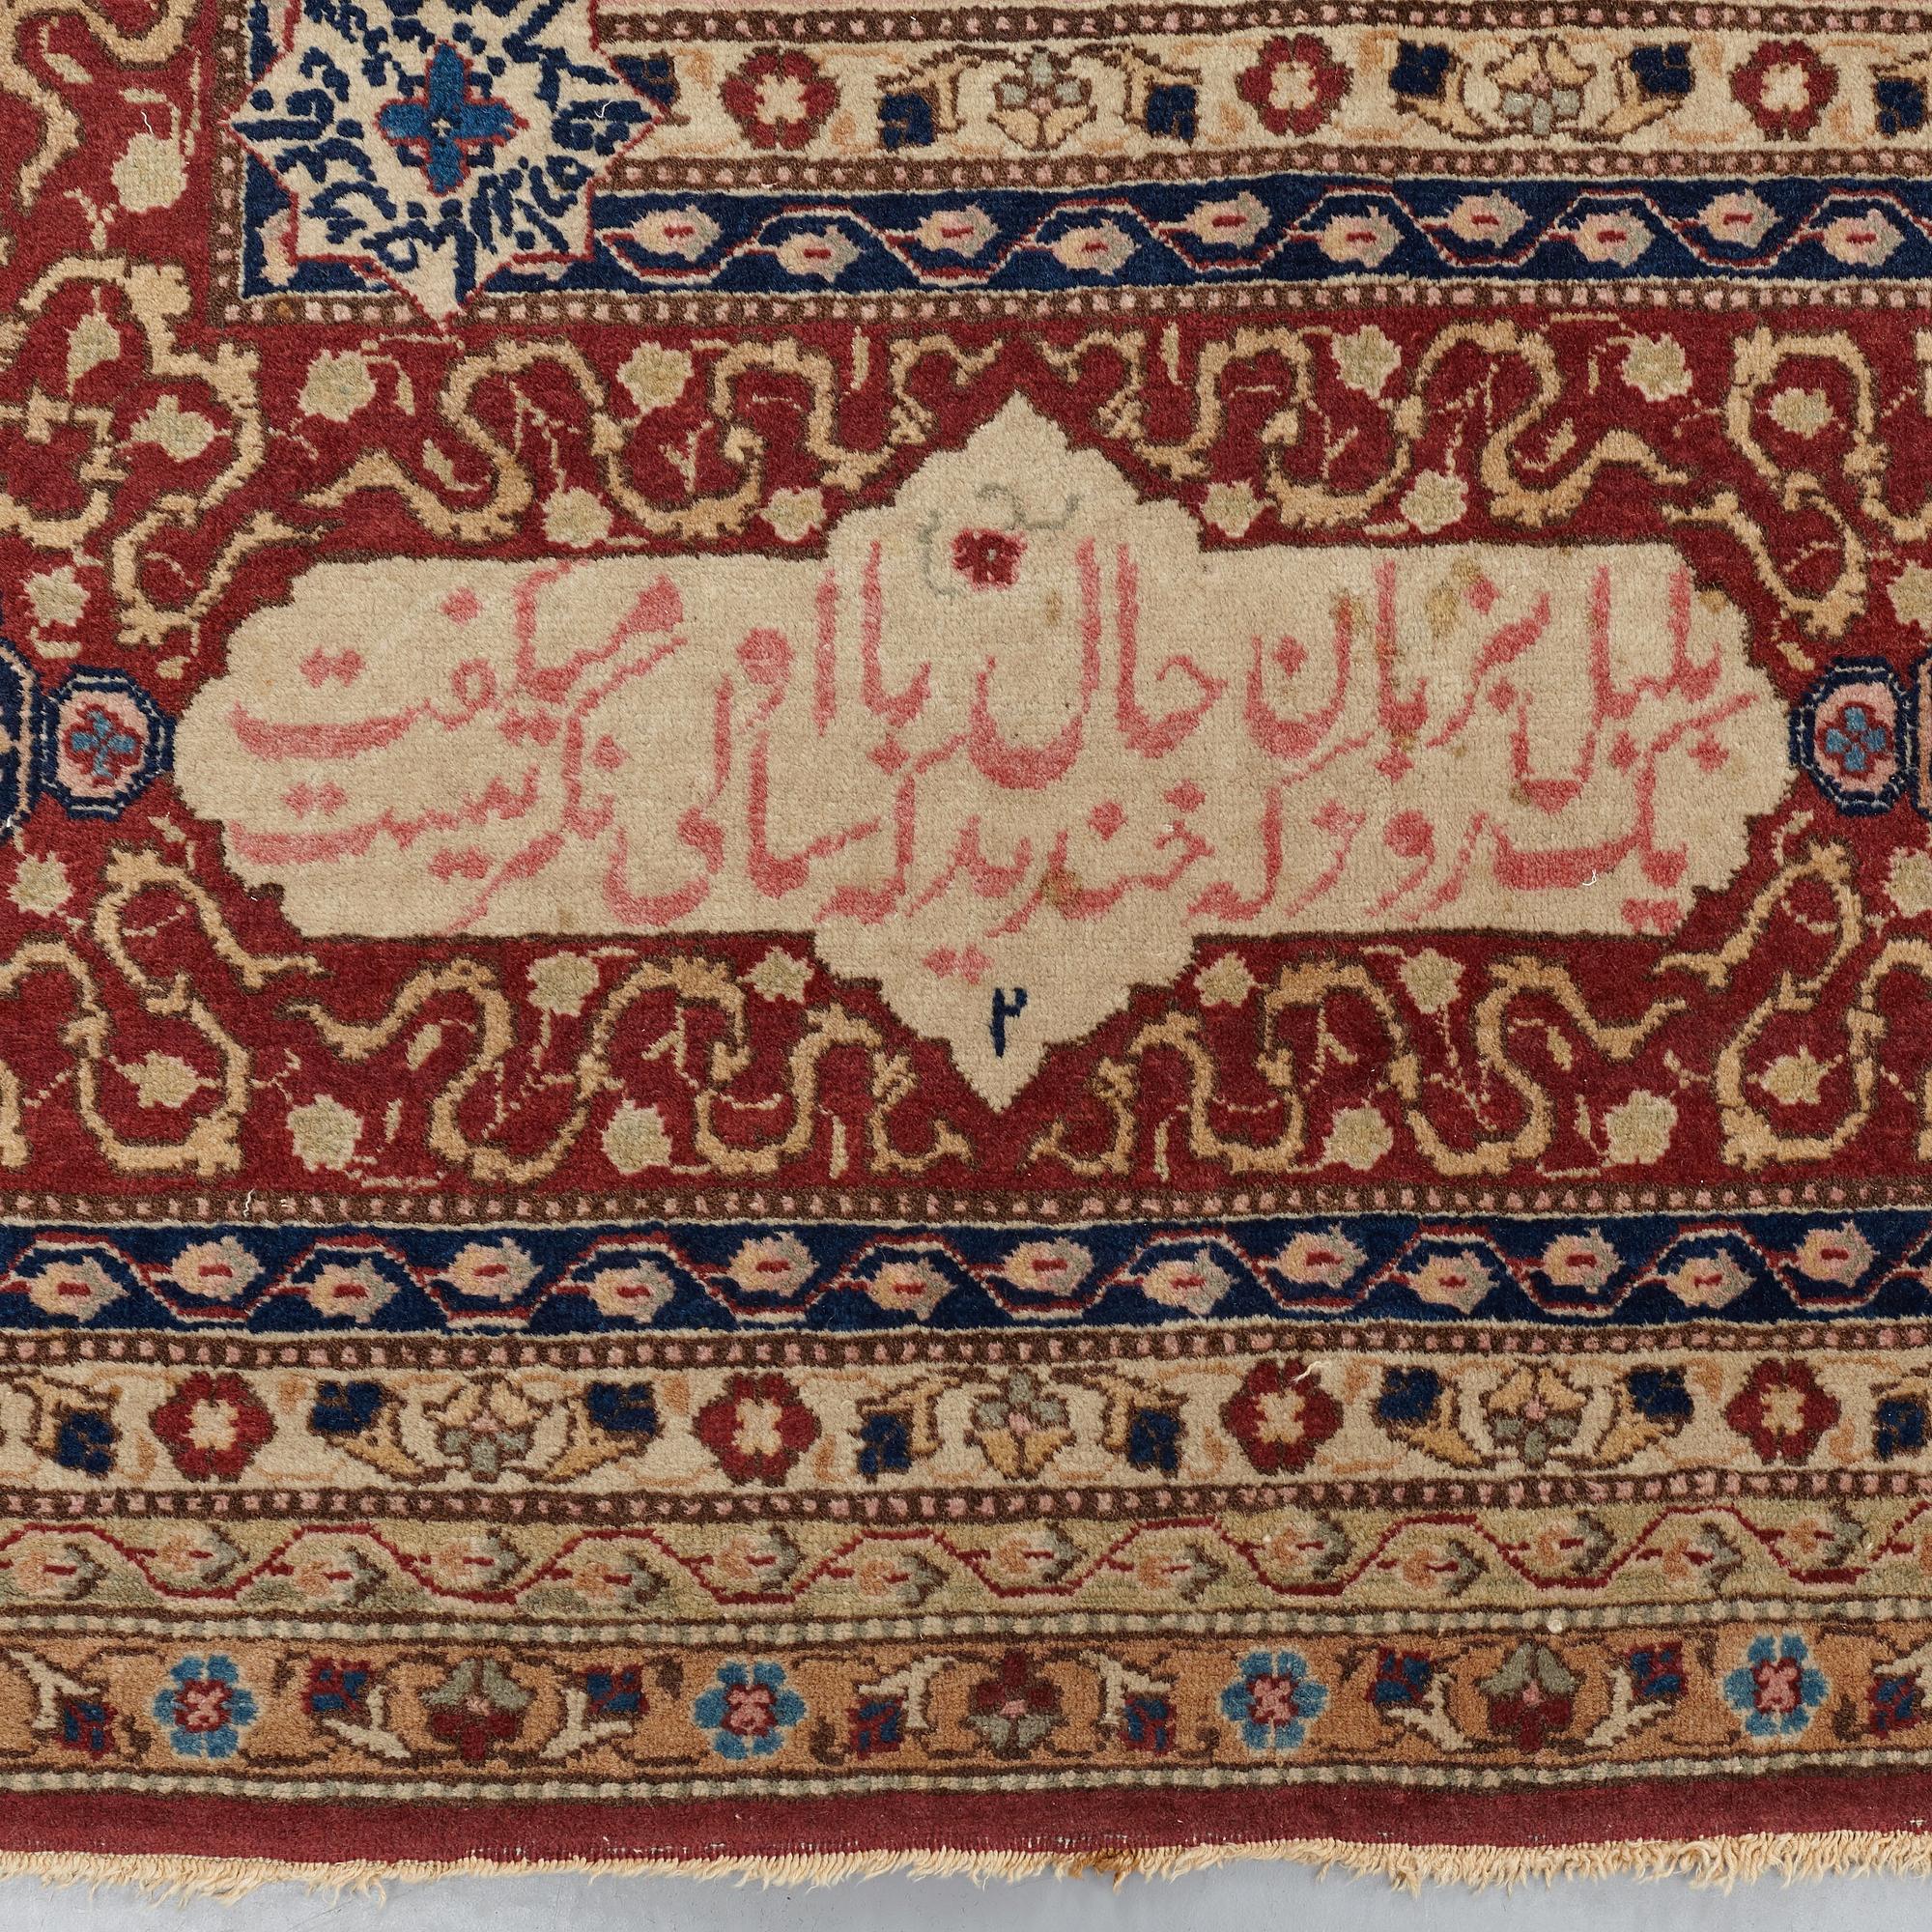 بلبل بزبان حال با او میگفت
یک روز که خندید که سالی نگریست
۲